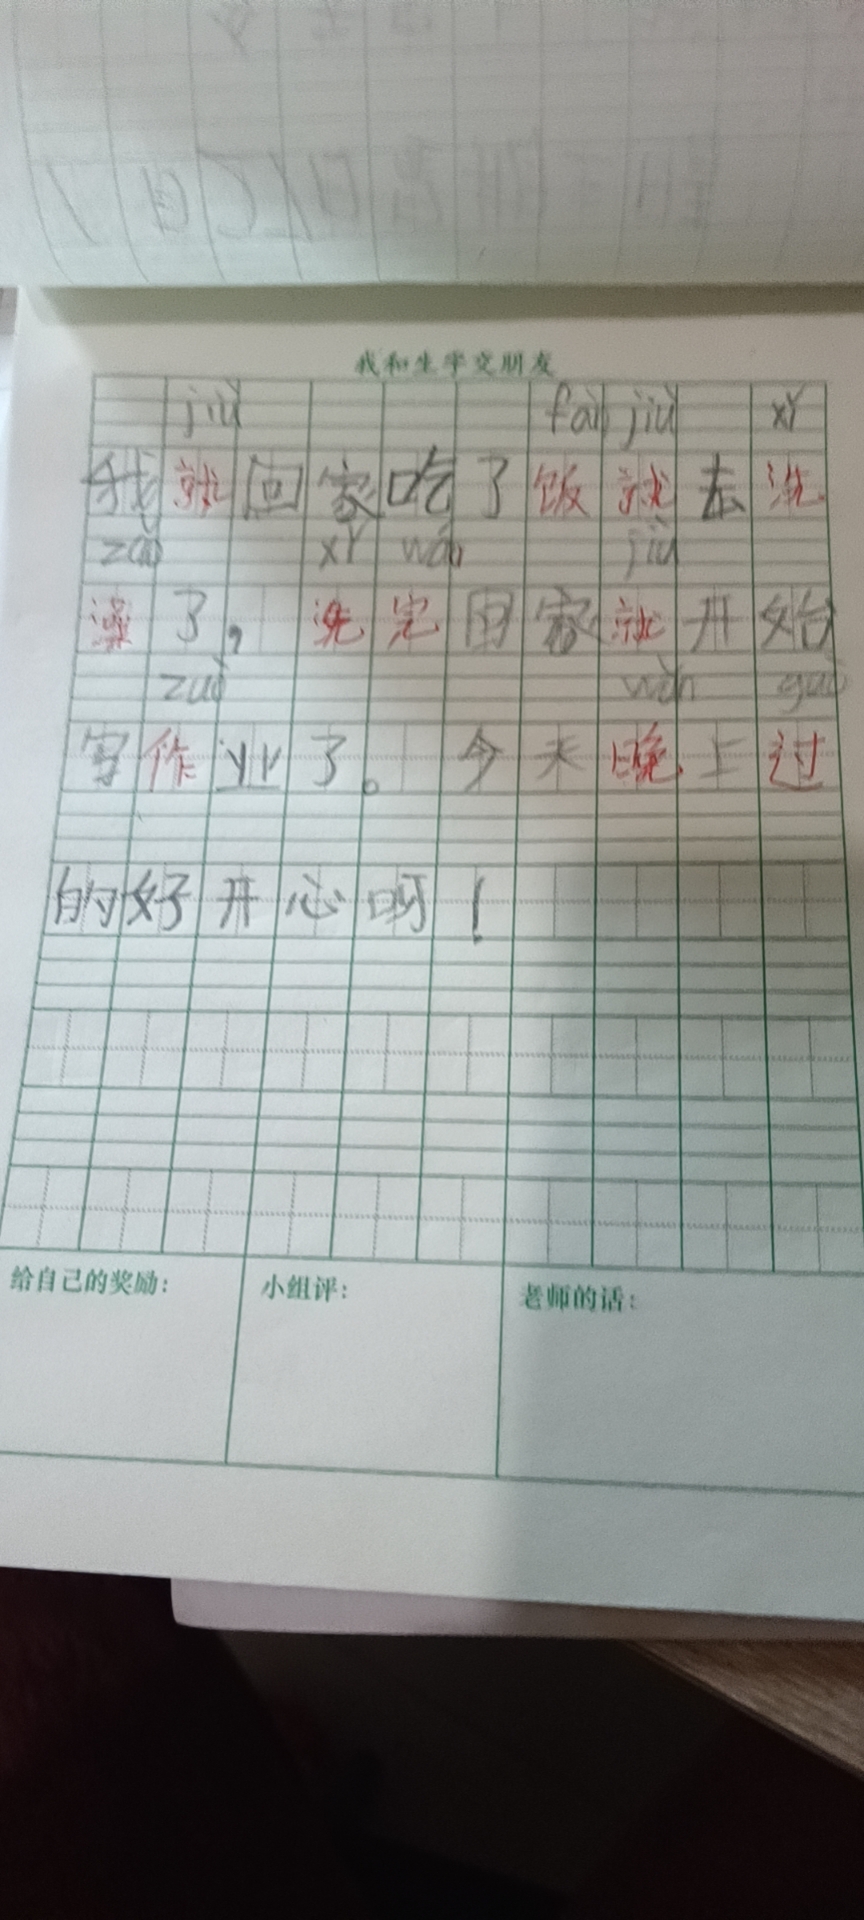 我和生字交朋友
jiù fàn jiù xǐ
我就回家吃了饭就去洗
zǎo xǐ wán jiù
澡了，洗完回家就开始
zuò wǎn guò
写作业了。今天晚上过
的好开心呀！
给自己的奖励： 小组评： 老师的话：